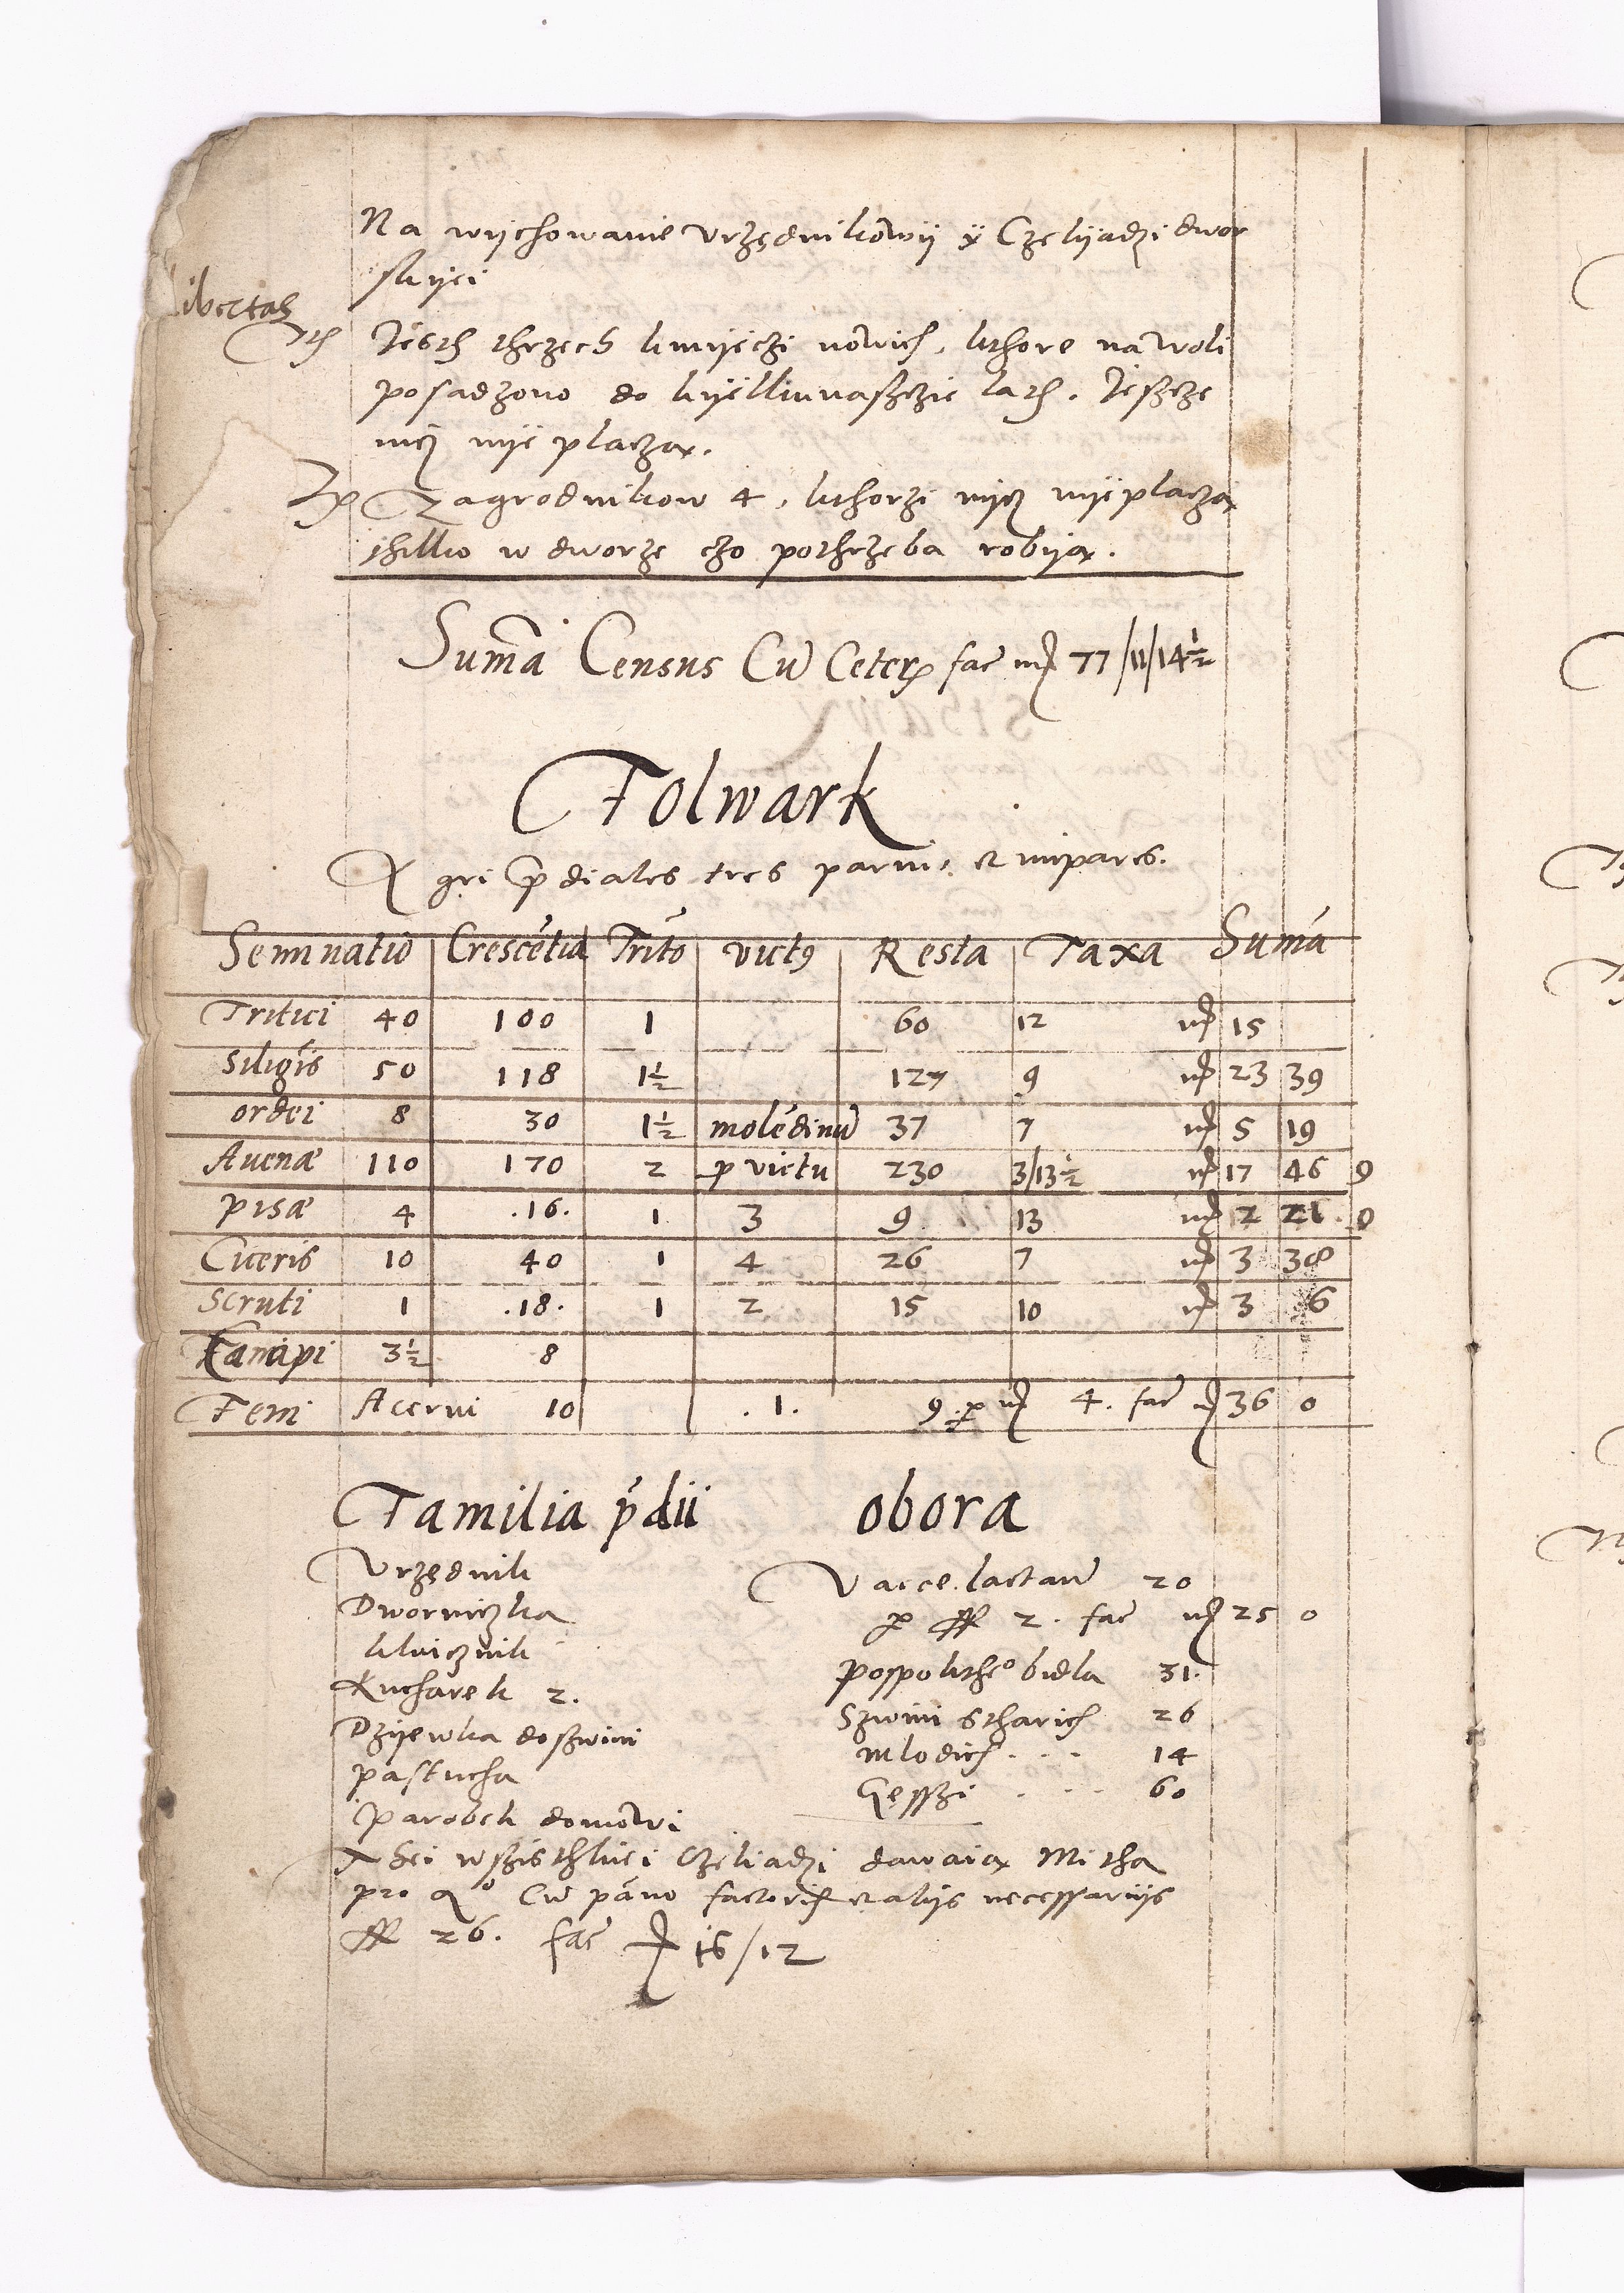 Na wychowanie Vrzędnikowÿ ÿ Czelyadzi dwor
skyei
Libertas
Jth Jesth thrzech kmyeczi nowich, kthore na woli
posadzono do kyelkunasczie lath. Jescze
nicz nÿe placzą.
Jtem Zagrodnikow 4, kthorzi nycz nÿe placzą
thilko w dworze czo pothrzeba robyą.
Suma Census Cu Ceteris fac mr 77/11/14½
Folwark
Agri pdiales tres parui et impares.
Seminatio Crescetia Trito victus Resta Taxa Suma
Tritici 40 100 1 60 12 mr 15
Siligis 50 118 1½ 127 9 mr 23 39
ordei 8 30 1½ moledinu 37 7 mr 5 19
Auenæ 110 170 2 p victu 230 3/13½ mr 17 46 9
pisæ 4 .16. 1 3 9 13 mr 2 21. 0
Ciceris 10 40 1 4 26 7 mr 3 38
Scruti 1 .18. 1 2 15 10 mr 3 6
Canapi 3½ 8
Feni Acerui 10 .1. 9 p mr 4. fac mr 36 0
Familia pdii obora
Vrzędnik
Dworniczka
kluicznik
Kucharek 2.
Dzyewka do szwini
pastucha
Parobek domowi
Vacce lactan 20
p ff 2. fac mr 25 0
pospolitheo bidla 31.
Szwini stharich 26
mlodich . . . 14
Gęsszi . . . 60
Thei wszisthkiei Czeliadzi dawaią Mitha
pro ao Cu panno factoris et alijs necessarijs
ff 26. fac mr 16/12